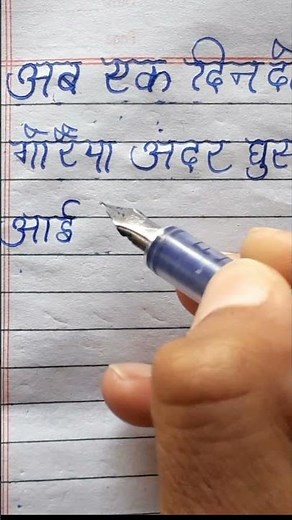 अब एक दिन दो
गौरैया अंदर घुस
आई